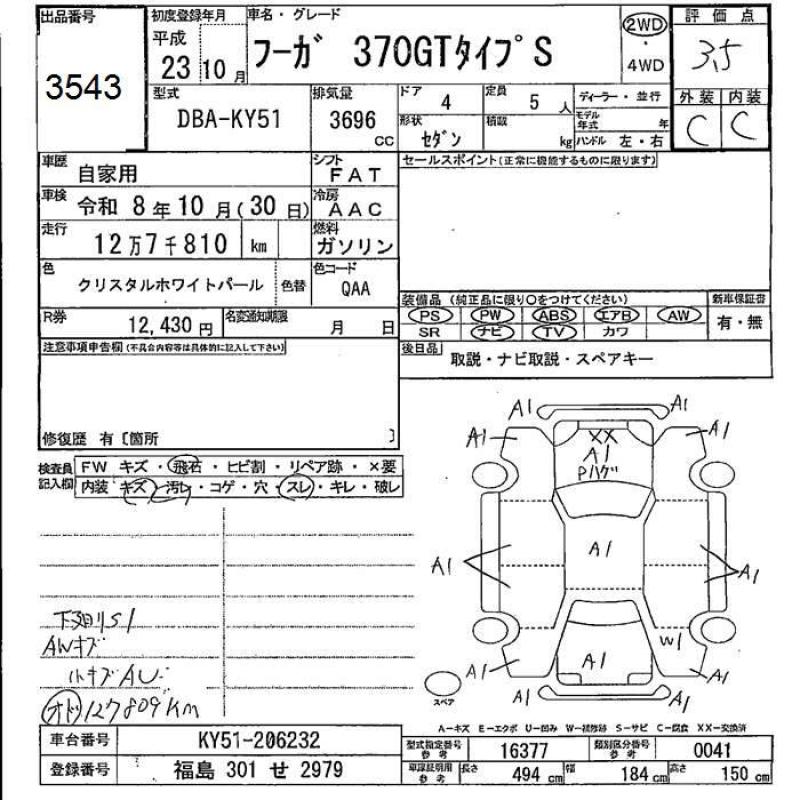 出品番号
3543
初度登録年月
平成
23 10 月
車名・グレード
フーガ 370GTタイプS
2WD
・
4WD
評価点
3.5
外装 内装
C C
型式
DBA-KY51
排気量
3696 cc
ドア 4
定員 5 人
ディーラー・並行
モデル年式 年
形状 セダン
積載 kg
ハンドル 左・右
車歴 自家用
シフト FAT
車検 令和 8年10月(30日)
冷房 AAC
走行 12万7千810 km
燃料 ガソリン
色 クリスタルホワイトパール 色替
色コード QAA
R券 12,430円
名変通知期限 月 日
セールスポイント(正常に機能するものに限ります)
装備品(純正品に限り○をつけてください)
新車保証書
PS PW ABS エアB AW
有・無
SR ナビ TV カワ
後日品 取説・ナビ取説・スペアキー
注意事項申告欄(不具合内容等は具体的に記入して下さい)
修復歴 有〔箇所 〕
検査員記入欄
FW キズ・飛石・ヒビ割・リペア跡・×要
内装 キズ・汚レ・コゲ・穴・スレ・キレ・破レ
AWキズ
小キズAU
オド 127809Km
A1 A1
A1 A1
XX
A1
Pハゲ
A1
A1 A1
W1
A1 A1 A1
スペア
A1 A1
A-キズ E-エクボ U-凹み W-補修跡 S-サビ C-腐食 XX-交換済
車台番号 KY51-206232
登録番号 福島 301 せ 2979
型式指定番号 参考 16377
類別区分番号 参考 0041
車庫証明用 参考 長さ 494 cm 幅 184 cm 高さ 150 cm